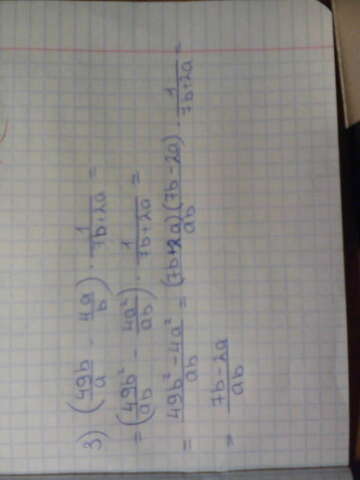 3) (49b/a - 4a/b) · 1/7b+2a =
= (49b²/ab - 4a²/ab) · 1/7b+2a =
= 49b²-4a²/ab = (7b+2a)(7b-2a)/ab · 1/7b+2a =
= 7b-2a/ab